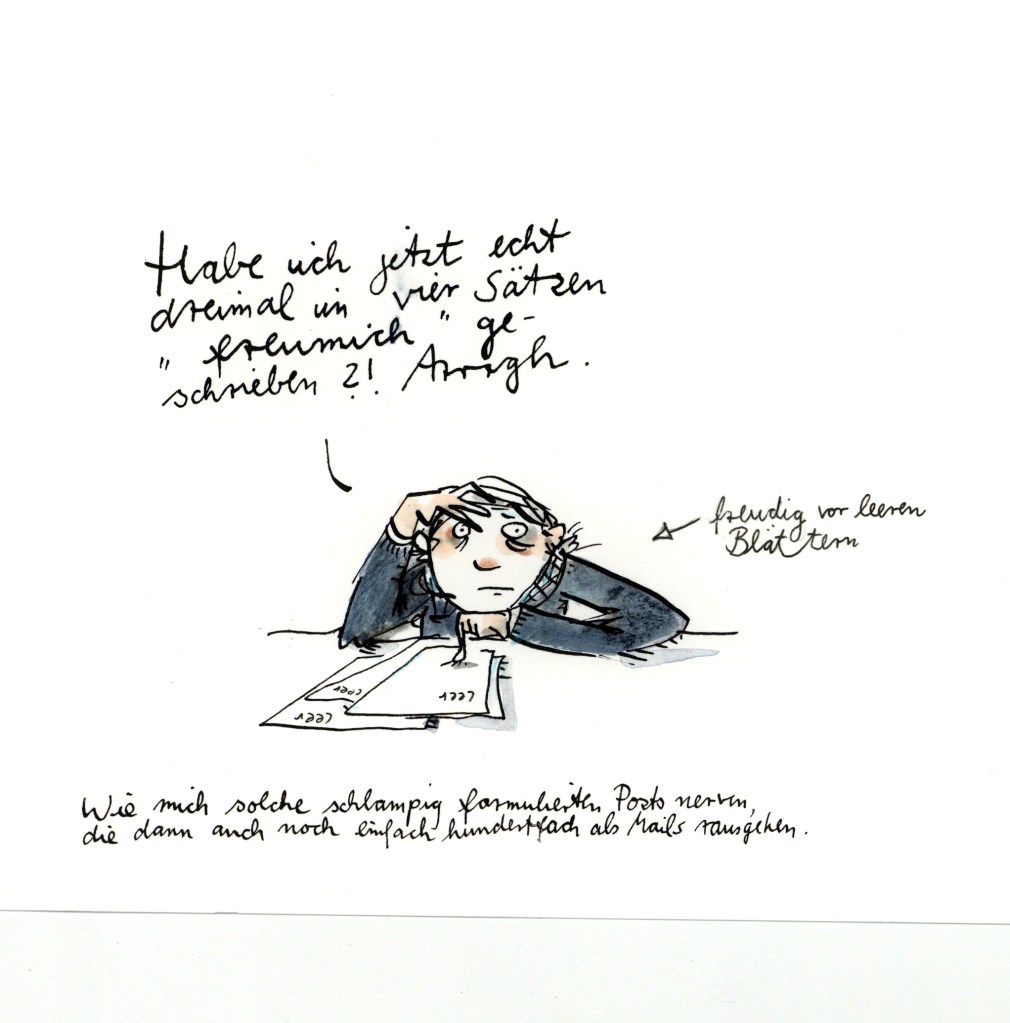 Habe ich jetzt echt
dreimal in vier Sätzen
"freumich" ge-
schrieben ?! Arrrgh.
freudig vor leeren
Blättern
leer
leer
leer
Wie mich solche schlampig formulierten Posts nerven,
die dann auch noch einfach hundertfach als Mails rausgehen.